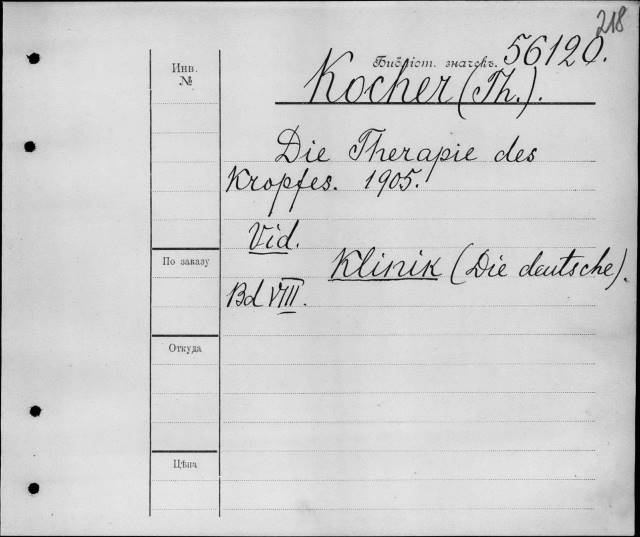 218
Библіот. значекъ. 56120.
Инв.
№
Kocher (Th.).
Die Therapie des
Kropfes. 1905.
Vid.
По заказу
Klinik (Die deutsche).
Bd VIII.
Откуда
Цѣна